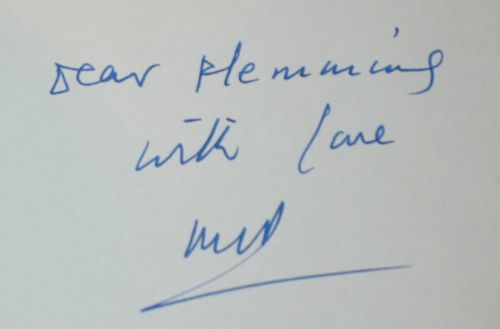 Dear Flemming
with love